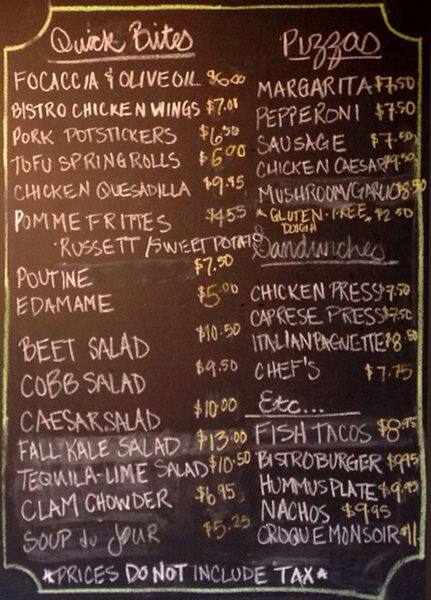 Quick Bites
FOCACCIA & OLIVE OIL $6.00
BISTRO CHICKEN WINGS $7.00
PORK POTSTICKERS $6.50
TOFU SPRING ROLLS $6.00
CHICKEN QUESADILLA $9.95
POMME FRITTES $4.55
·RUSSETT/SWEET POTATO
POUTINE $7.50
EDAMAME $5.00
BEET SALAD $10.50
COBB SALAD $9.50
CAESAR SALAD $10.00
FALL KALE SALAD $13.00
TEQUILA-LIME SALAD $10.50
CLAM CHOWDER $6.95
SOUP du JOUR $5.25
Pizzas
MARGARITA $7.50
PEPPERONI $7.50
SAUSAGE $7.50
CHICKEN CAESAR $9.50
MUSHROOM/GARLIC $8.50
*GLUTEN-FREE $2.50
DOUGH
Sandwiches
CHICKEN PRESS $7.50
CAPRESE PRESS $7.50
ITALIAN BAGUETTE $8.50
CHEF'S $7.75
Etc...
FISH TACOS $8.95
BISTRO BURGER $9.95
HUMMUS PLATE $9.95
NACHOS $9.95
CROQUE MONSOIR $11
*PRICES DO NOT INCLUDE TAX*